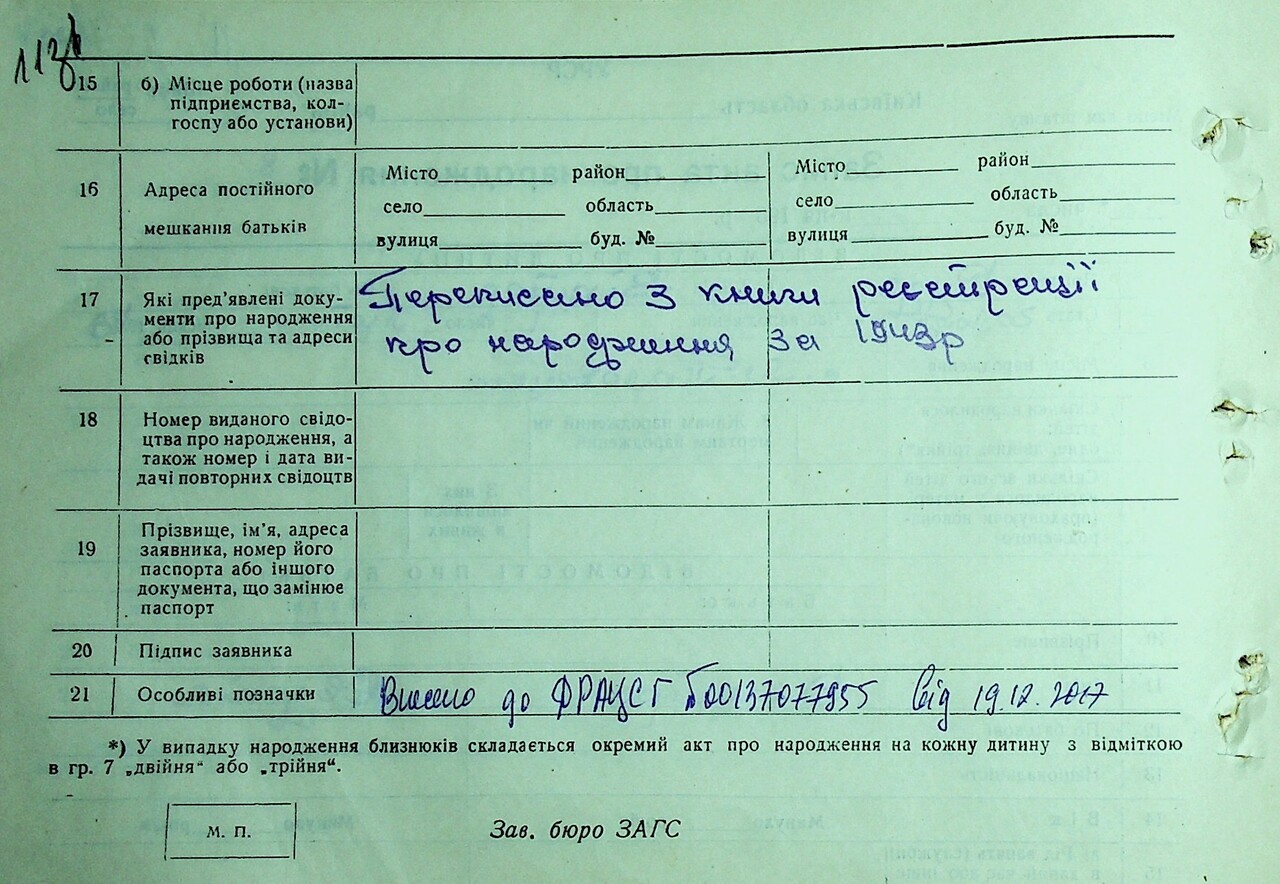 113
15 б) Місце роботи (назва
підприємства, кол-
госпу або установи)
16 Адреса постійного
мешкання батьків
Місто район
село область
вулиця буд. №
Місто район
село область
вулиця буд. №
17 Які пред'явлені доку-
менти про народження
або прізвища та адреси
свідків
Переписано з книги реєстрації
про народження за 1943р
18 Номер виданого свідо-
цтва про народження, а
також номер і дата ви-
дачі повторних свідоцтв
19 Прізвище, ім'я, адреса
заявника, номер його
паспорта або іншого
документа, що замінює
паспорт
20 Підпис заявника
21 Особливі позначки
Внесено до ФРАЦСГ 00137077955 від 19.12.2017
*) У випадку народження близнюків складається окремий акт про народження на кожну дитину з відміткою
в гр. 7 „двійня“ або „трійня“.
м. п.
Зав. бюро ЗАГС